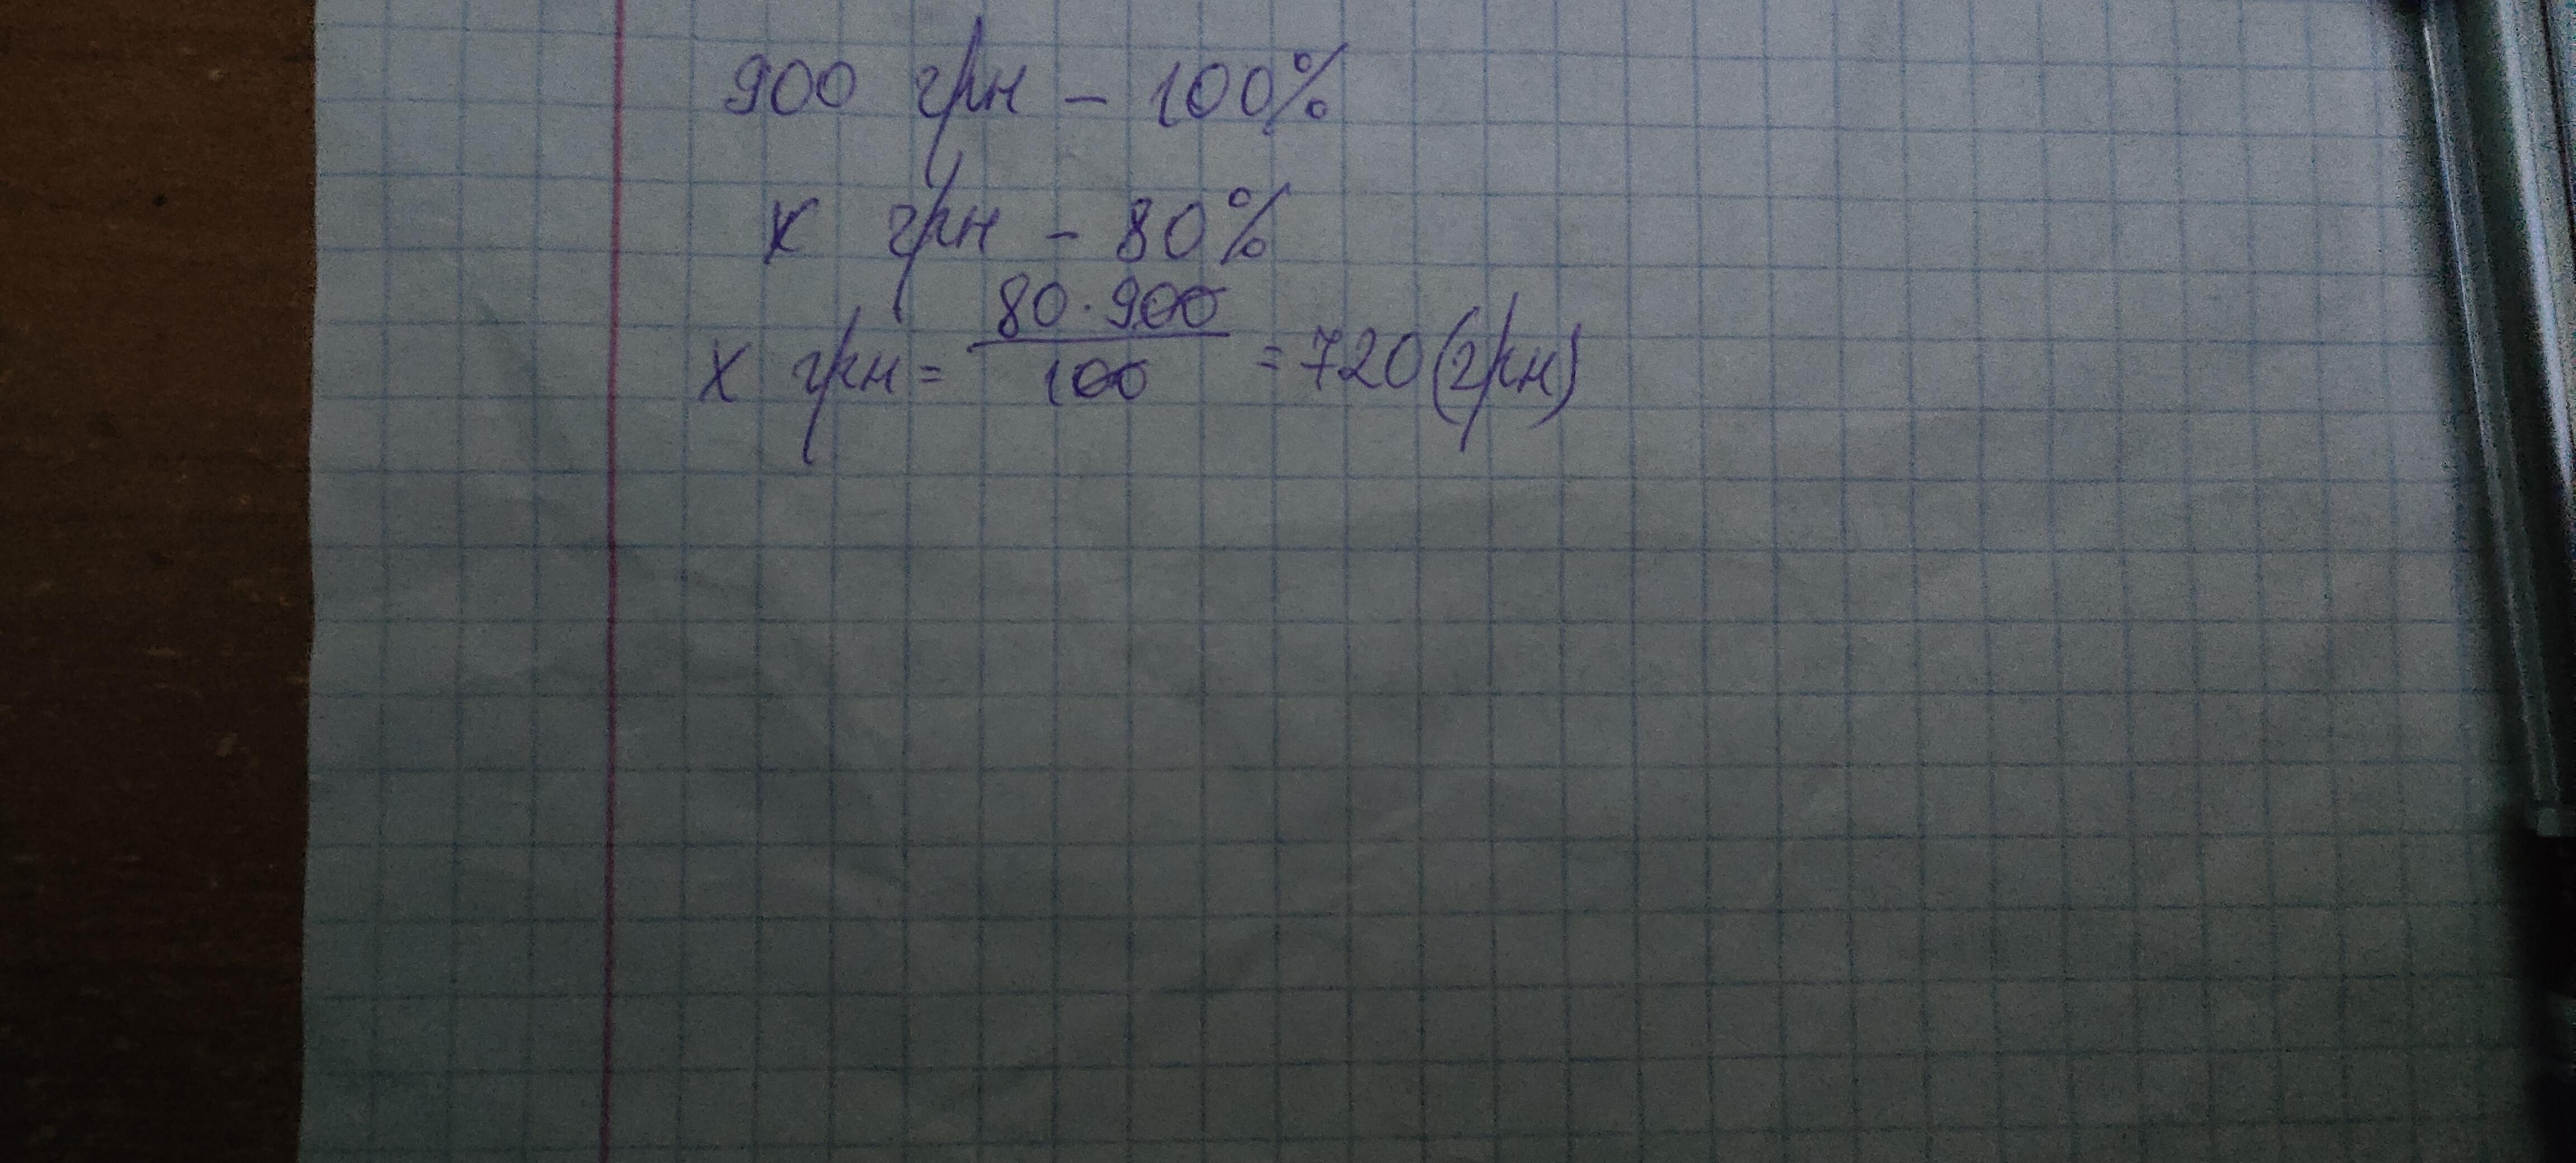 900 грн - 100%
x грн - 80%
x грн = 80·900 / 100 = 720 (грн)